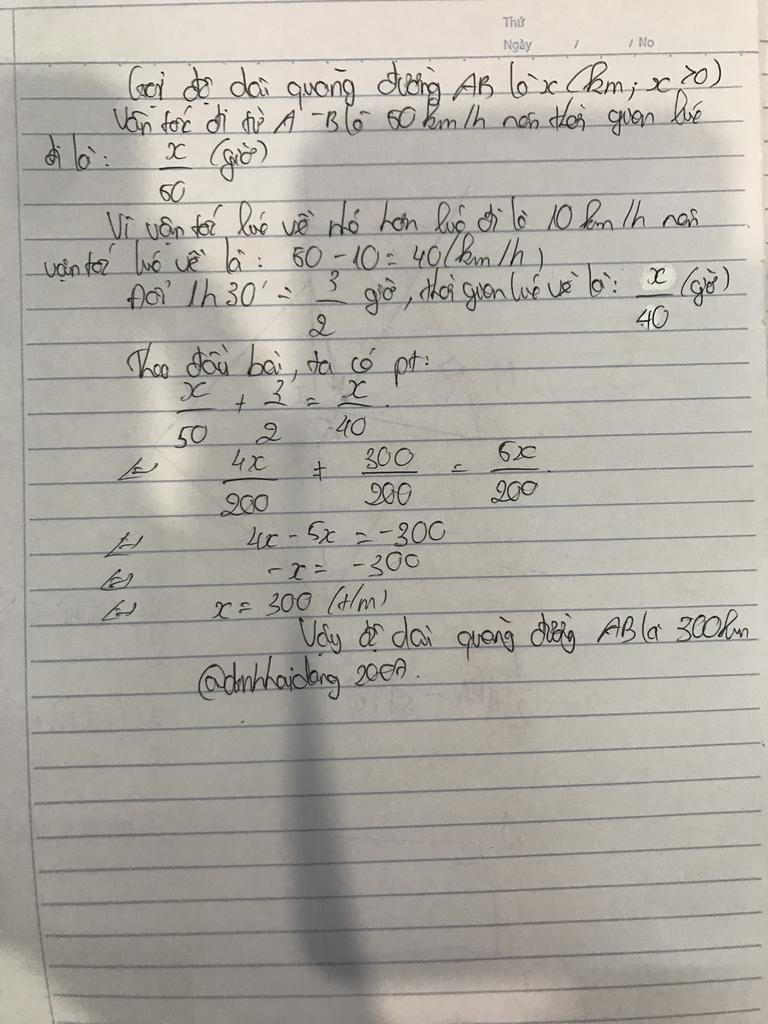 Thứ
Ngày / / No
Gọi độ dài quãng đường AB là x (km; x>0)
Vận tốc đi từ A-B là 50 km/h nên thời gian lúc
đi là: x/50 (giờ)
Vì vận tốc lúc về nhỏ hơn lúc đi là 10 km/h nên
vận tốc lúc về là: 50 - 10 = 40 (km/h)
Đổi 1h30' = 3/2 giờ, thời gian lúc về là: x/40 (giờ)
Theo đầu bài, ta có pt:
x/50 + 3/2 = x/40.
⇔ 4x/200 + 300/200 = 5x/200.
⇔ 4x - 5x = -300
⇔ -x = -300
⇔ x = 300 (t/m)
Vậy độ dài quãng đường AB là 300km